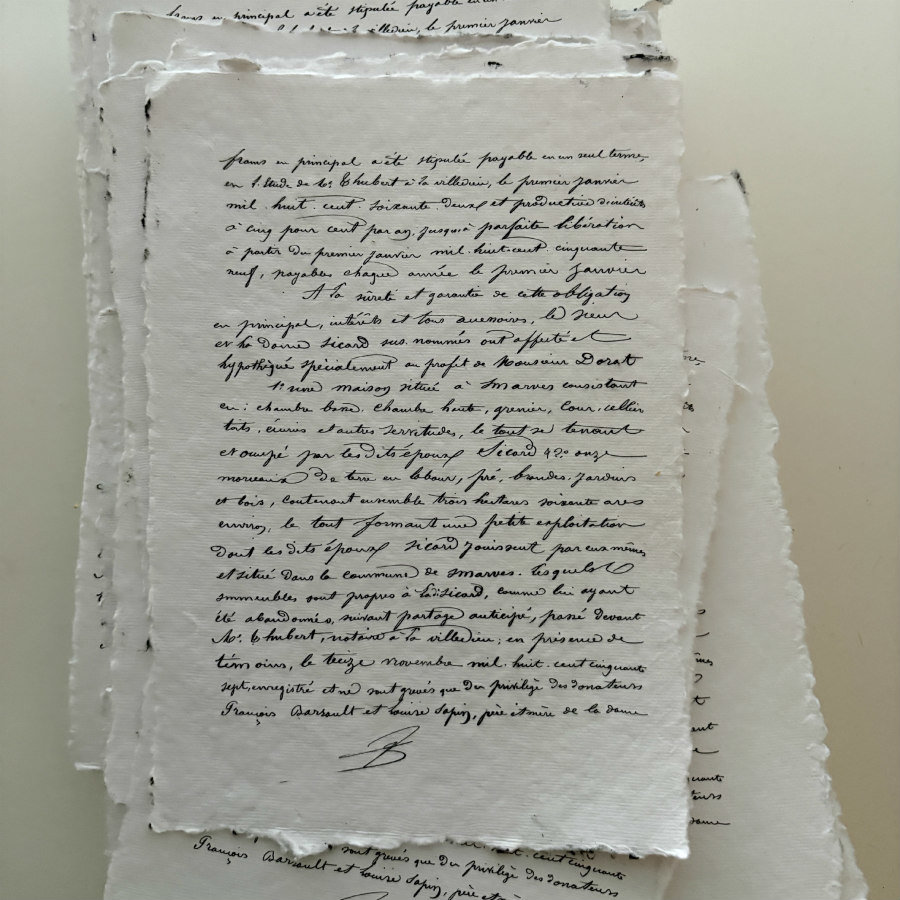 francs en principal a été stipulée payable en un
la villedieu, le premier janvier
francs en principal a été stipulée payable en un seul terme,
en l'étude de Me Chubert à la villedieu, le premier janvier
mil huit cent soixante deux et productive d'intérêts
à cinq pour cent par an, jusqu'à parfaite libération
à partir du premier janvier mil huit cent cinquante
neuf, payables chaque année le premier janvier
A la sûreté et garantie de cette obligation
en principal, intérêts et tous accessoires, le sieur
et la Dame Sicard sus nommés ont affecté et
hypothéqué spécialement au profit de Monsieur Dorat
1º une maison située à Smarves consistant
en: chambre basse, chambre haute, grenier, cour, cellier
tots, écuries et autres servitudes, le tout se tenant
et occupé par les dits époux Sicard & 2º onze
morceaux de terre en labour, pré, brandes, jardins
et bois, contenant ensemble trois hectares soixante ares
environ, le tout formant une petite exploitation
dont les dits époux Sicard jouissent par eux mêmes
et situé dans la commune de Smarves. Lesquels
immeubles sont propres à Sicard, comme lui ayant
été abandonnés, suivant partage anticipé, passé devant
Me Chubert, notaire à la villedieu; en présence de
témoins, le treize novembre mil huit cent cinquante
sept, enregistré et ne sont grevés que du privilège des donateurs
François Barsault et Louise Sapin, père et mère de la dame
cent cinquante
sont grevés que du privilège des donateurs
François Barsault et Louise Sapin, père et
mes
ant
quante
ateurs
dame